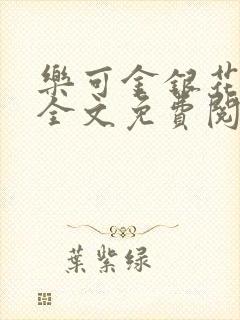 樂可金銀花
全文免費閱
葉紫绿